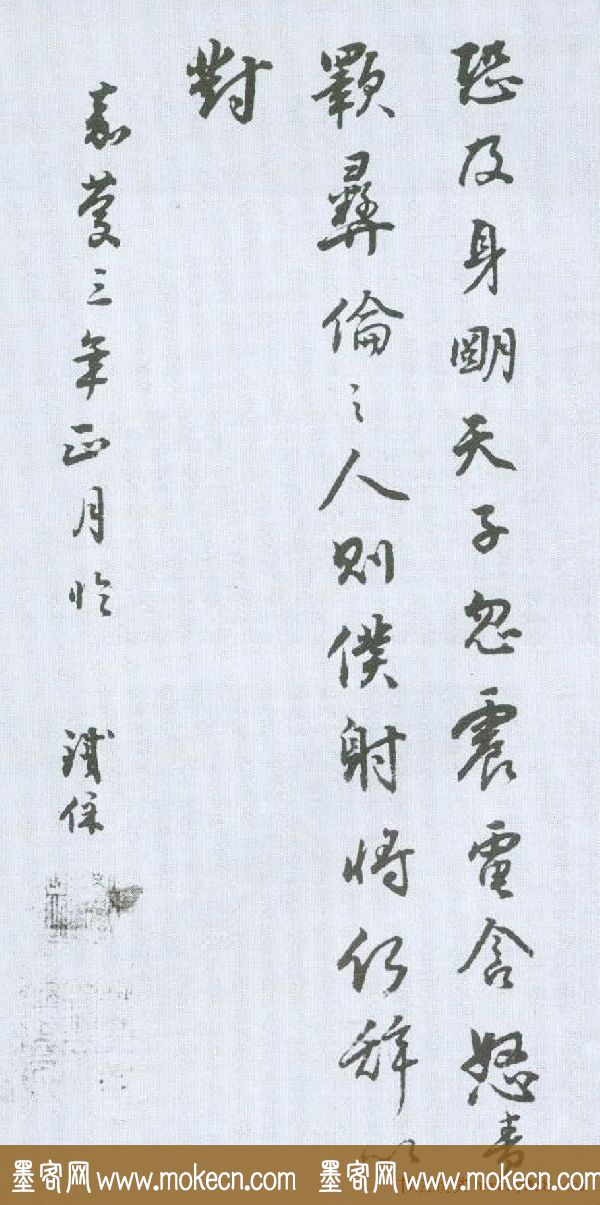 恐及身明天子忽震電含怒責
斁彝倫之人則僕射將何辞以
對
嘉慶三年正月臨
鐵保
墨客网 www.mokecn.com 墨客网 www.mokecn.com